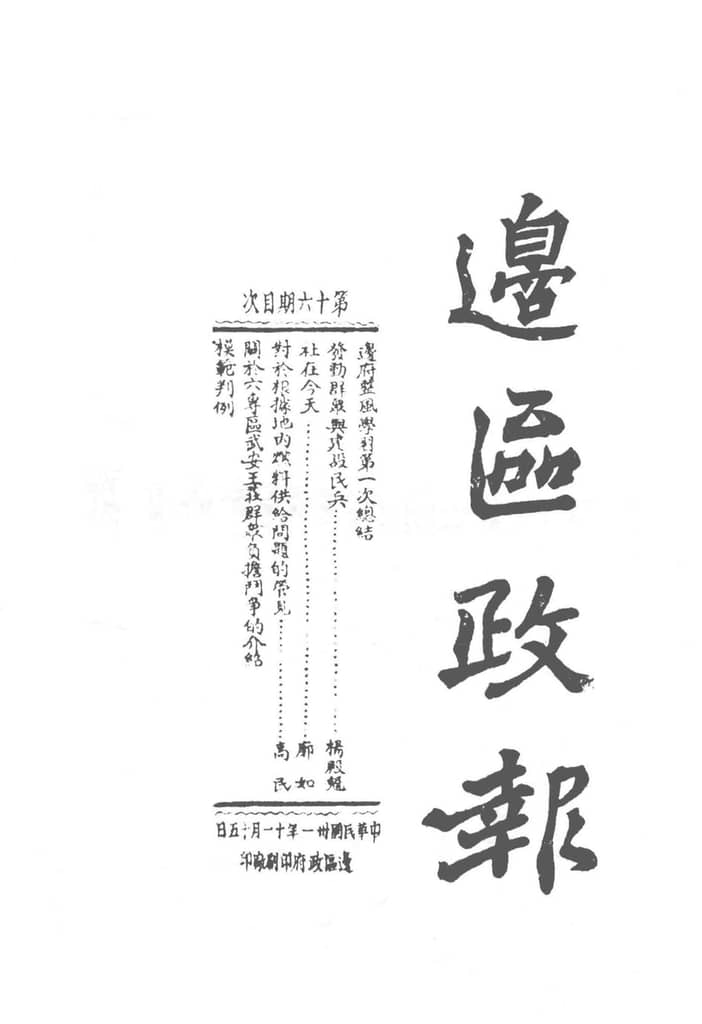 邊區政報
第十六期目次
邊府整風學習第一次總結
發動群眾與建設民兵……………………楊殿魁
社在今天……………………廓如
對於根據地內燃料供給問題的管見……………………高民
關於六專區武安王莊群眾負擔鬥爭的介紹
模範判例
中華民國卅一年十一月十五日
邊區政府印刷廠印